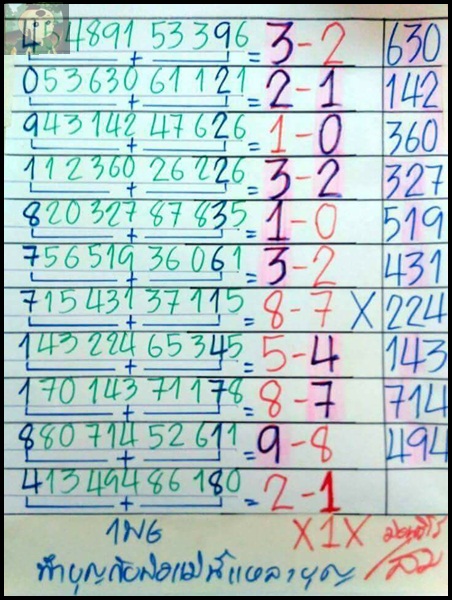 4 4891 53396 = 3-2 630
+
053630 61121 = 2-1 142
+
943142 47626 = 1-0 360
+
112360 26226 = 3-2 327
+
820327 87835 = 1-0 519
+
756519 36061 = 3-2 431
+
715431 37115 = 8-7 X 224
+
143224 65345 = 5-4 143
+
170143 71178 = 8-7 714
+
880714 52611 = 9-8 494
+
413494 86180 = 2-1
+
X1X
ทำบุญกับพ่อแม่นี่แหละบุญ